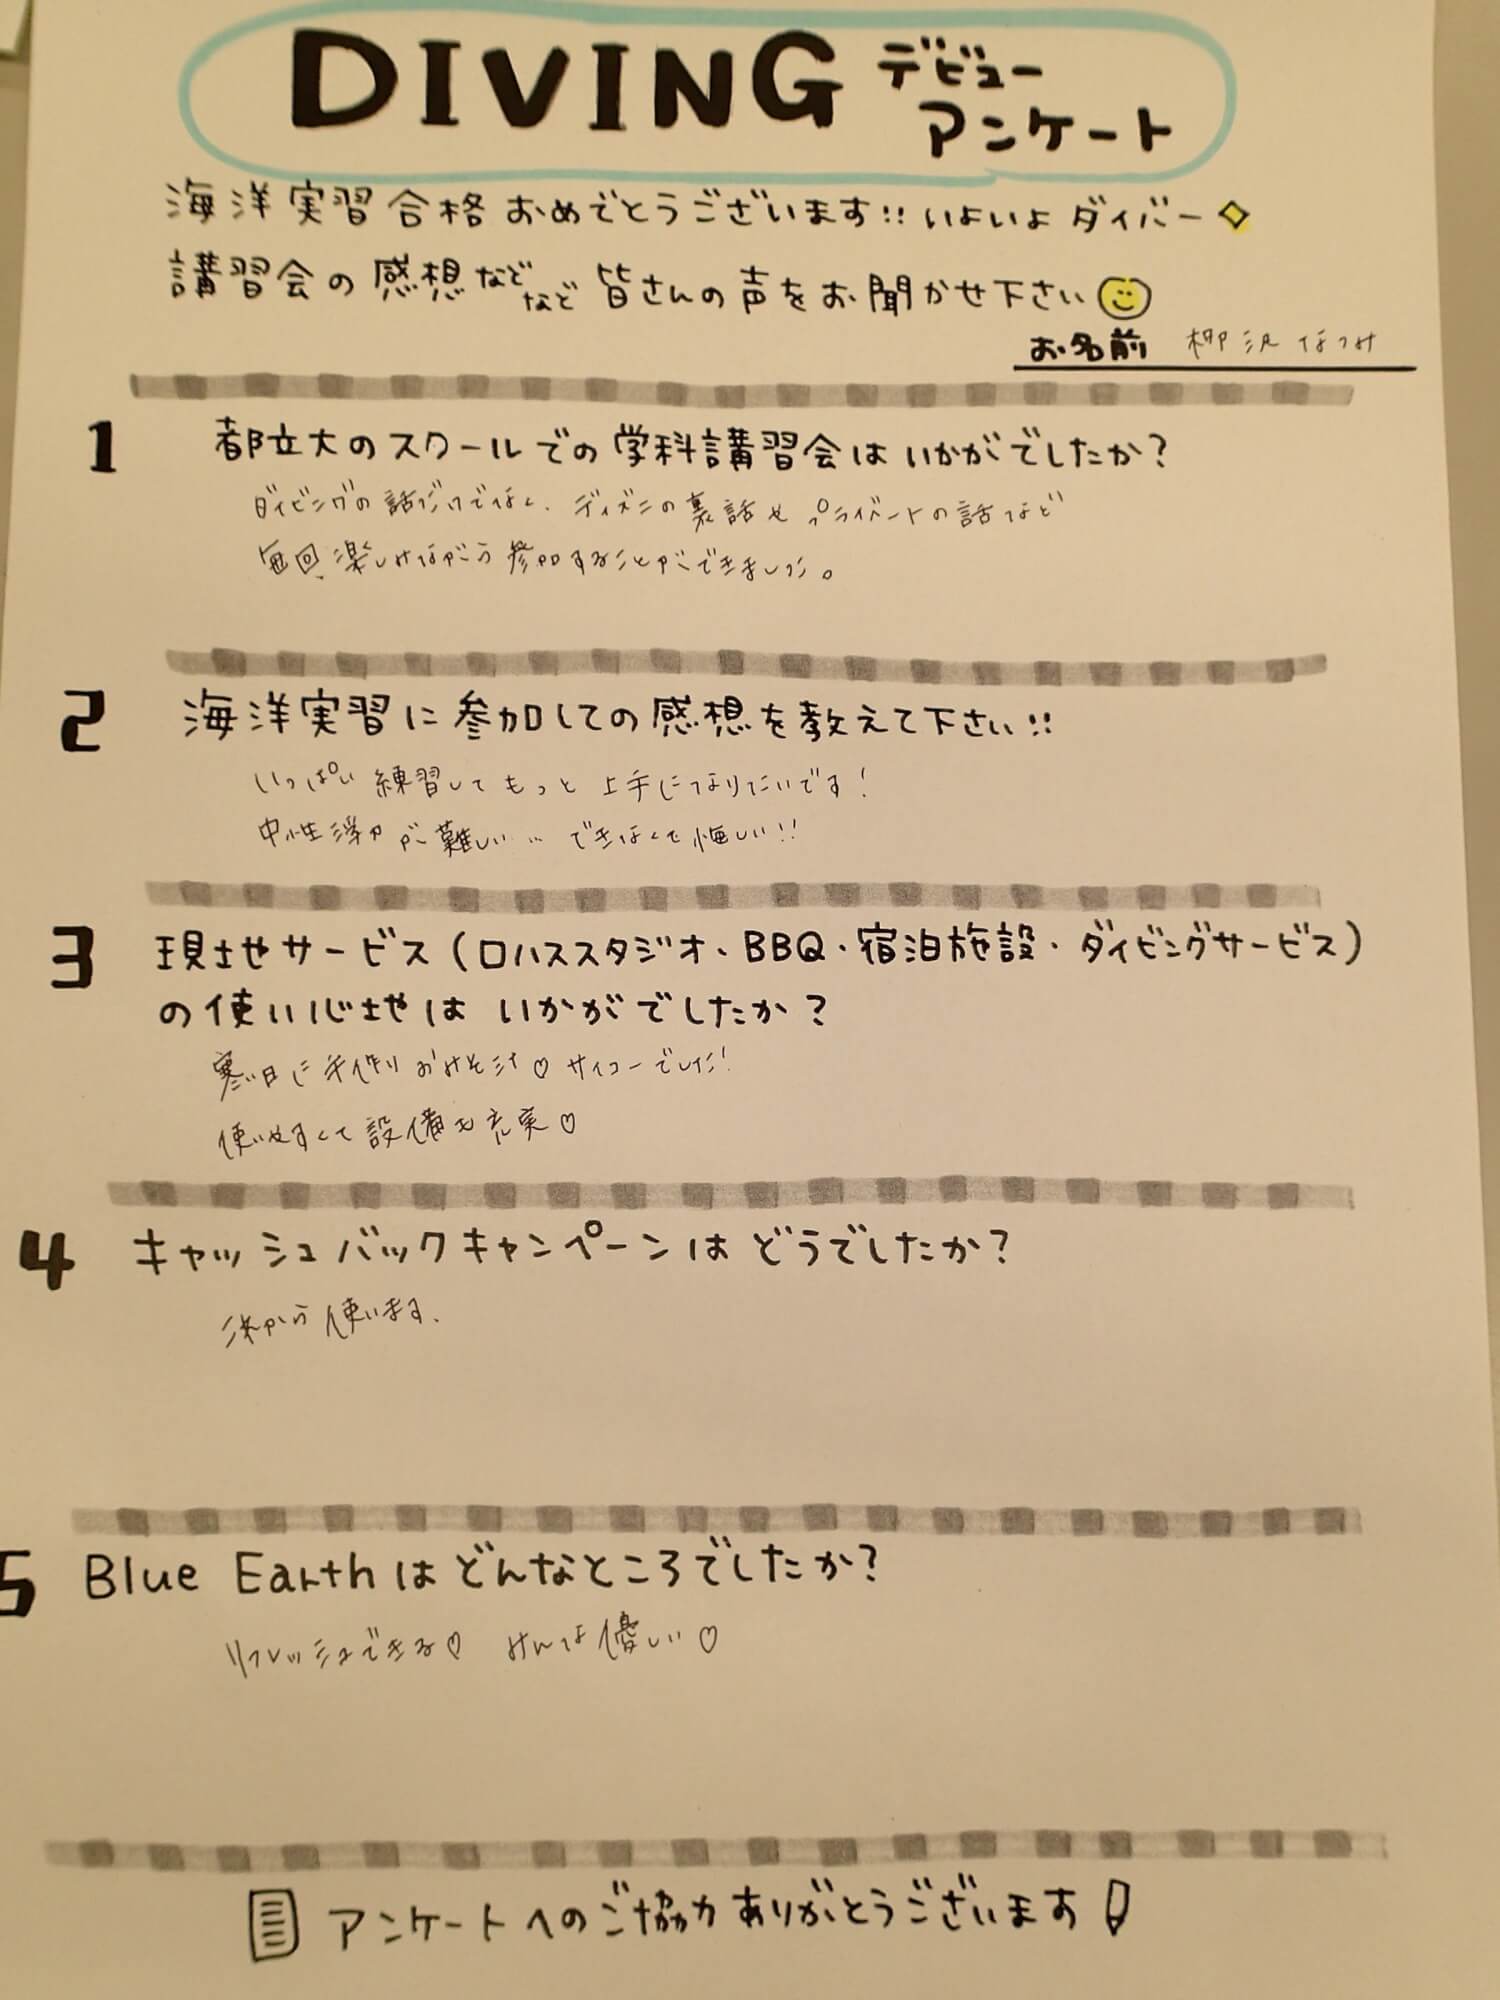 DIVING デビュー
アンケート
海洋実習合格おめでとうございます!! いよいよダイバー
講習会の感想などなど皆さんの声をお聞かせ下さい
お名前 柳沢なつみ
1 都立大のスクールでの学科講習会はいかがでしたか?
ダイビングの話だけでなく、ディズニの裏話やプライベートの話など
毎回、楽しみながら参加することができました。
2 海洋実習に参加しての感想を教えて下さい!!
いっぱい練習してもっと上手になりたいです!
中性浮力が難しい… できなくて悔しい!!
3 現地サービス(ロハススタジオ、BBQ・宿泊施設・ダイビングサービス)
の使い心地は いかがでしたか?
寒い日に手作りおみそ汁♡サイコーでした!
使いやすくて設備も充実♡
4 キャッシュバックキャンペーンは どうでしたか?
次から使います.
5 Blue Earthはどんなところでしたか?
リフレッシュできる♡ みんな優しい♡
アンケートへのご協力ありがとうございます